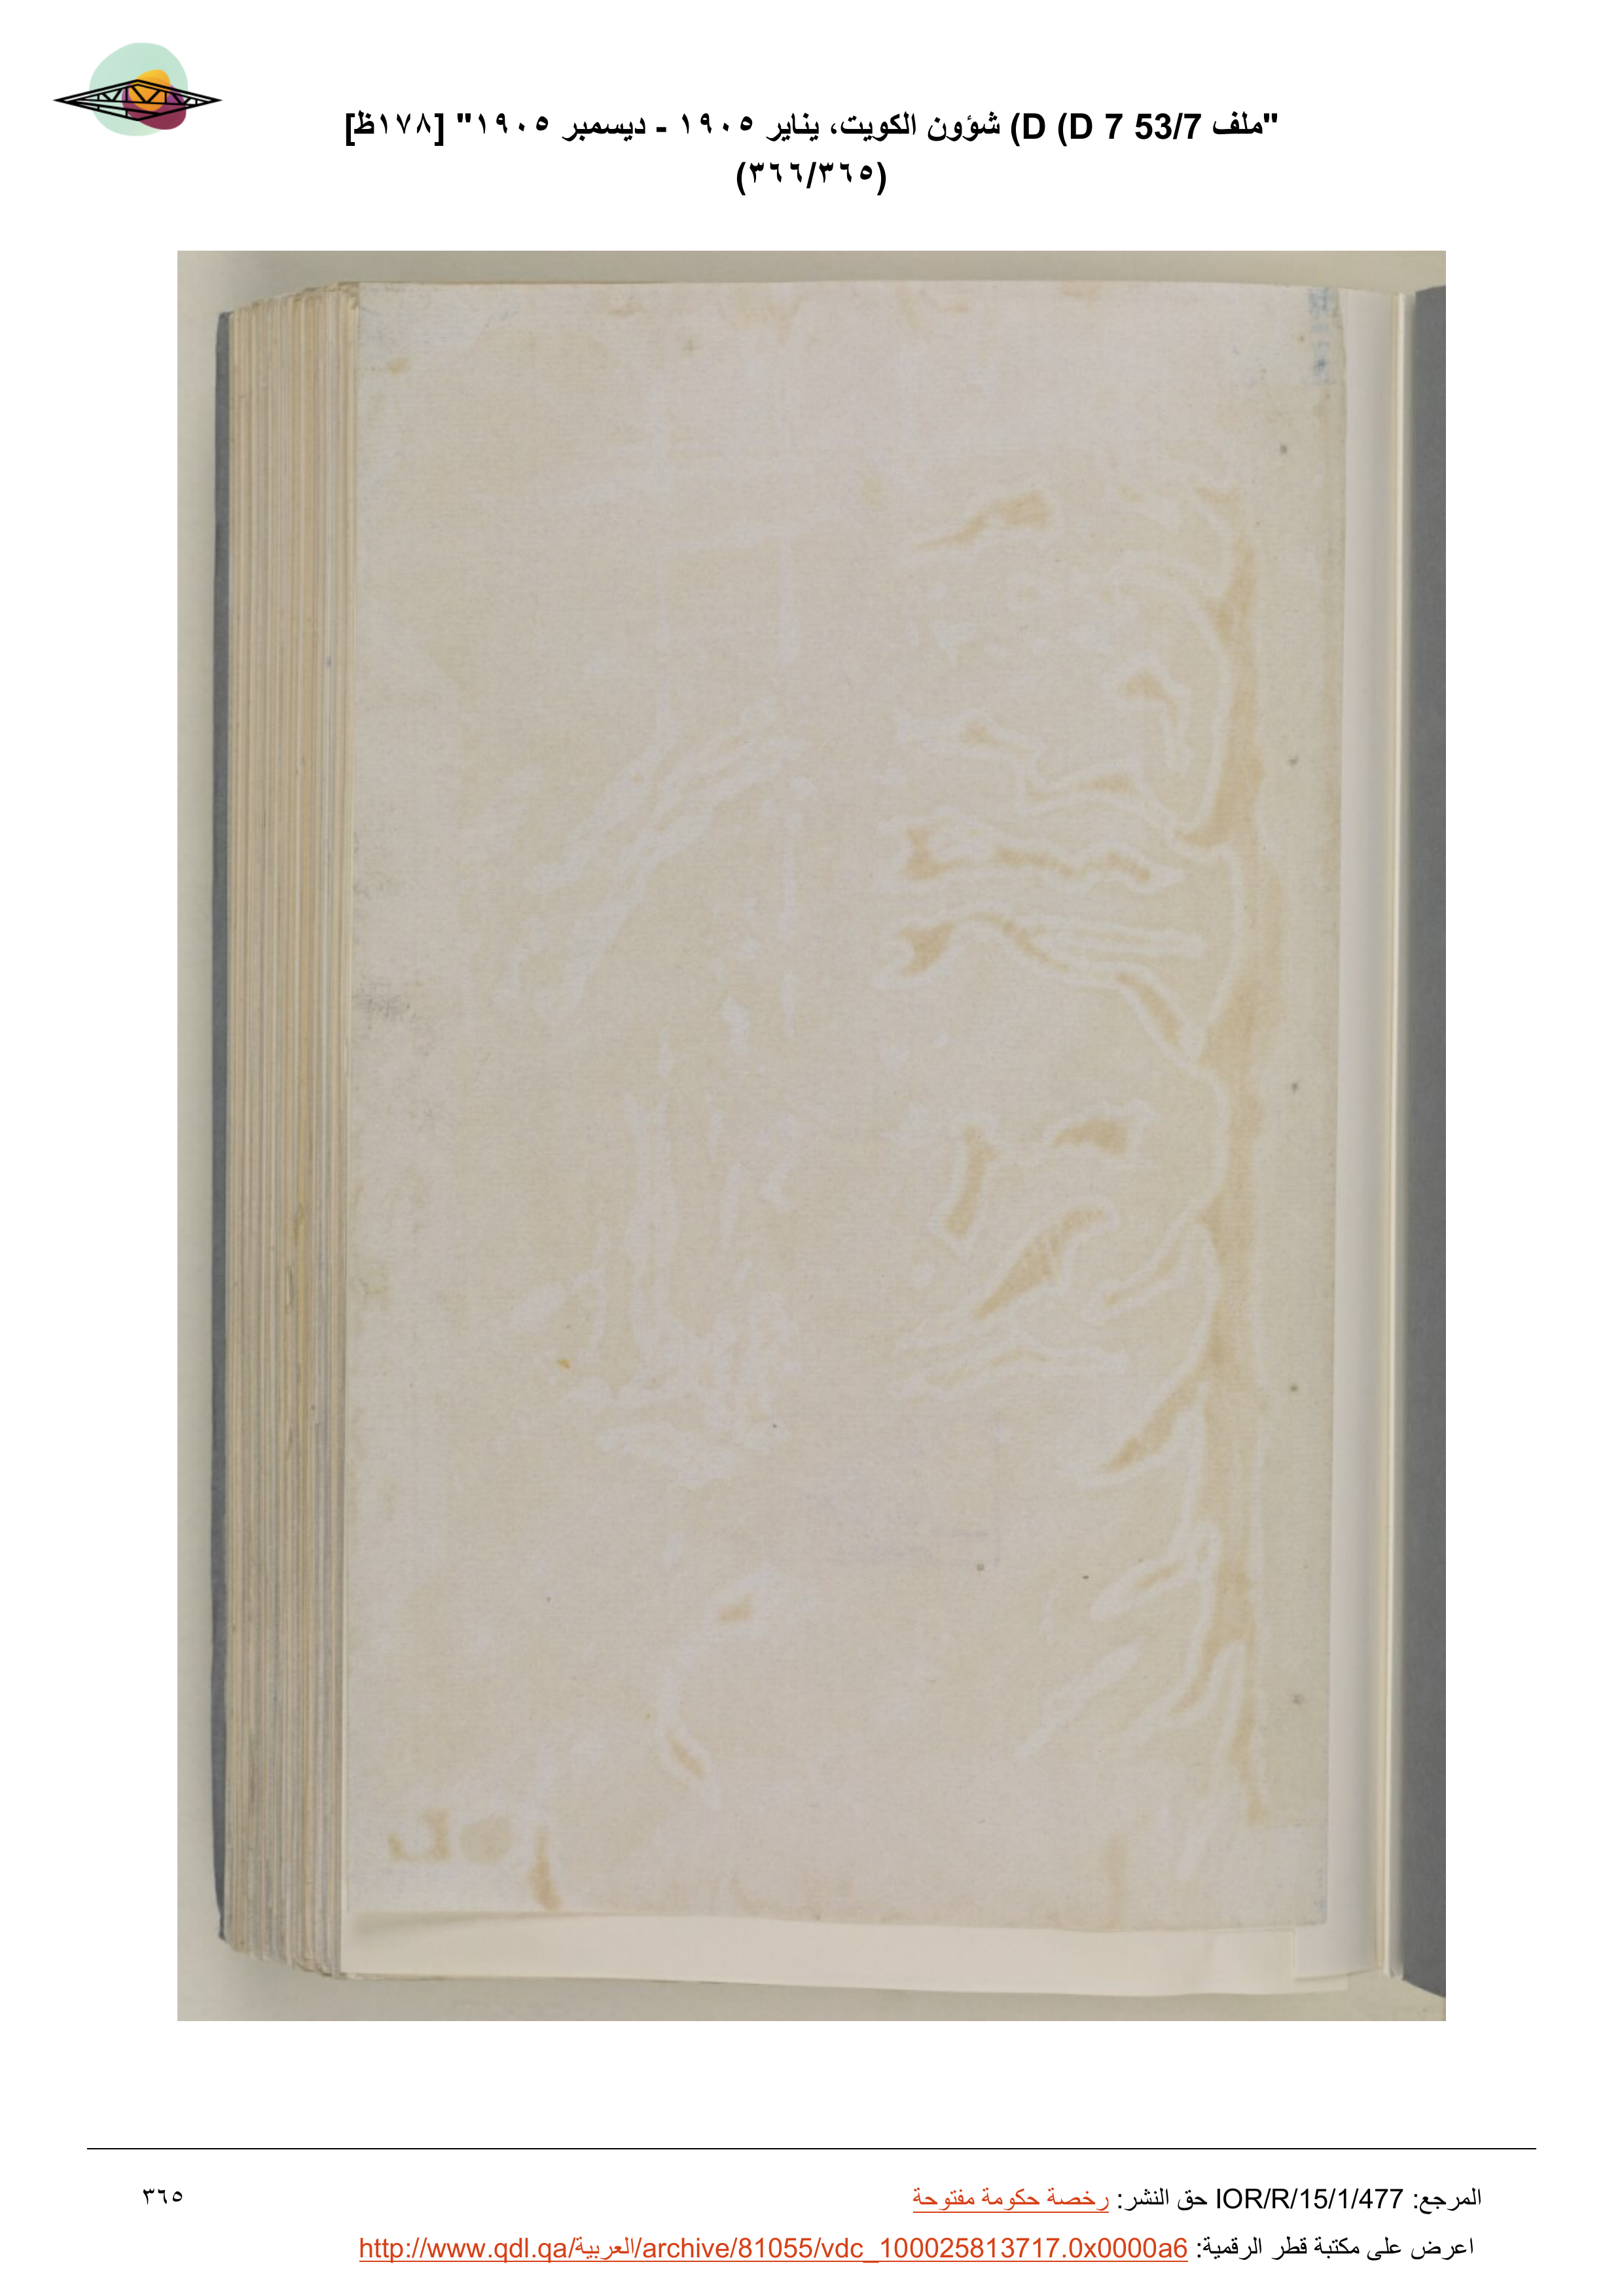 "ملف 53/7 D 7) D) شؤون الكويت، يناير ١٩٠٥ - ديسمبر ١٩٠٥" [١٧٨ظ]
(٣٦٦/٣٦٥)
المرجع: IOR/R/15/1/477 حق النشر: رخصة حكومة مفتوحة
٣٦٥
اعرض على مكتبة قطر الرقمية: http://www.qdl.qa/العربية/archive/81055/vdc_100025813717.0x0000a6